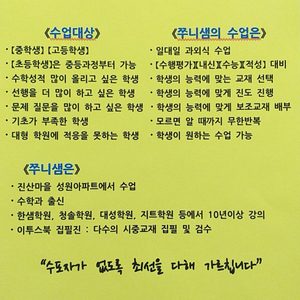 《수업대상》
• [중학생] [고등학생]
• [초등학생]은 중등과정부터 가능
• 수학성적 많이 올리고 싶은 학생
• 선행을 더 많이 하고 싶은 학생
• 문제 질문을 많이 하고 싶은 학생
• 기초가 부족한 학생
• 대형 학원에 적응을 못하는 학생
《쭈니샘의 수업은》
• 일대일 과외식 수업
• [수행평가][내신][수능][적성] 대비
• 학생의 능력에 맞는 교재 선택
• 학생의 능력에 맞게 진도 진행
• 학생의 능력에 맞게 보조교재 배부
• 모르면 알 때까지 무한반복
• 학생이 원하는 수업 가능
《쭈니샘은》
• 진산마을 성원아파트에서 수업
• 수학과 출신
• 한샘학원, 청솔학원, 대성학원, 지트학원 등에서 10년이상 강의
• 이투스북 집필진 : 다수의 시중교재 집필 및 검수
"수포자가 없도록 최선을 다해 가르칩니다"